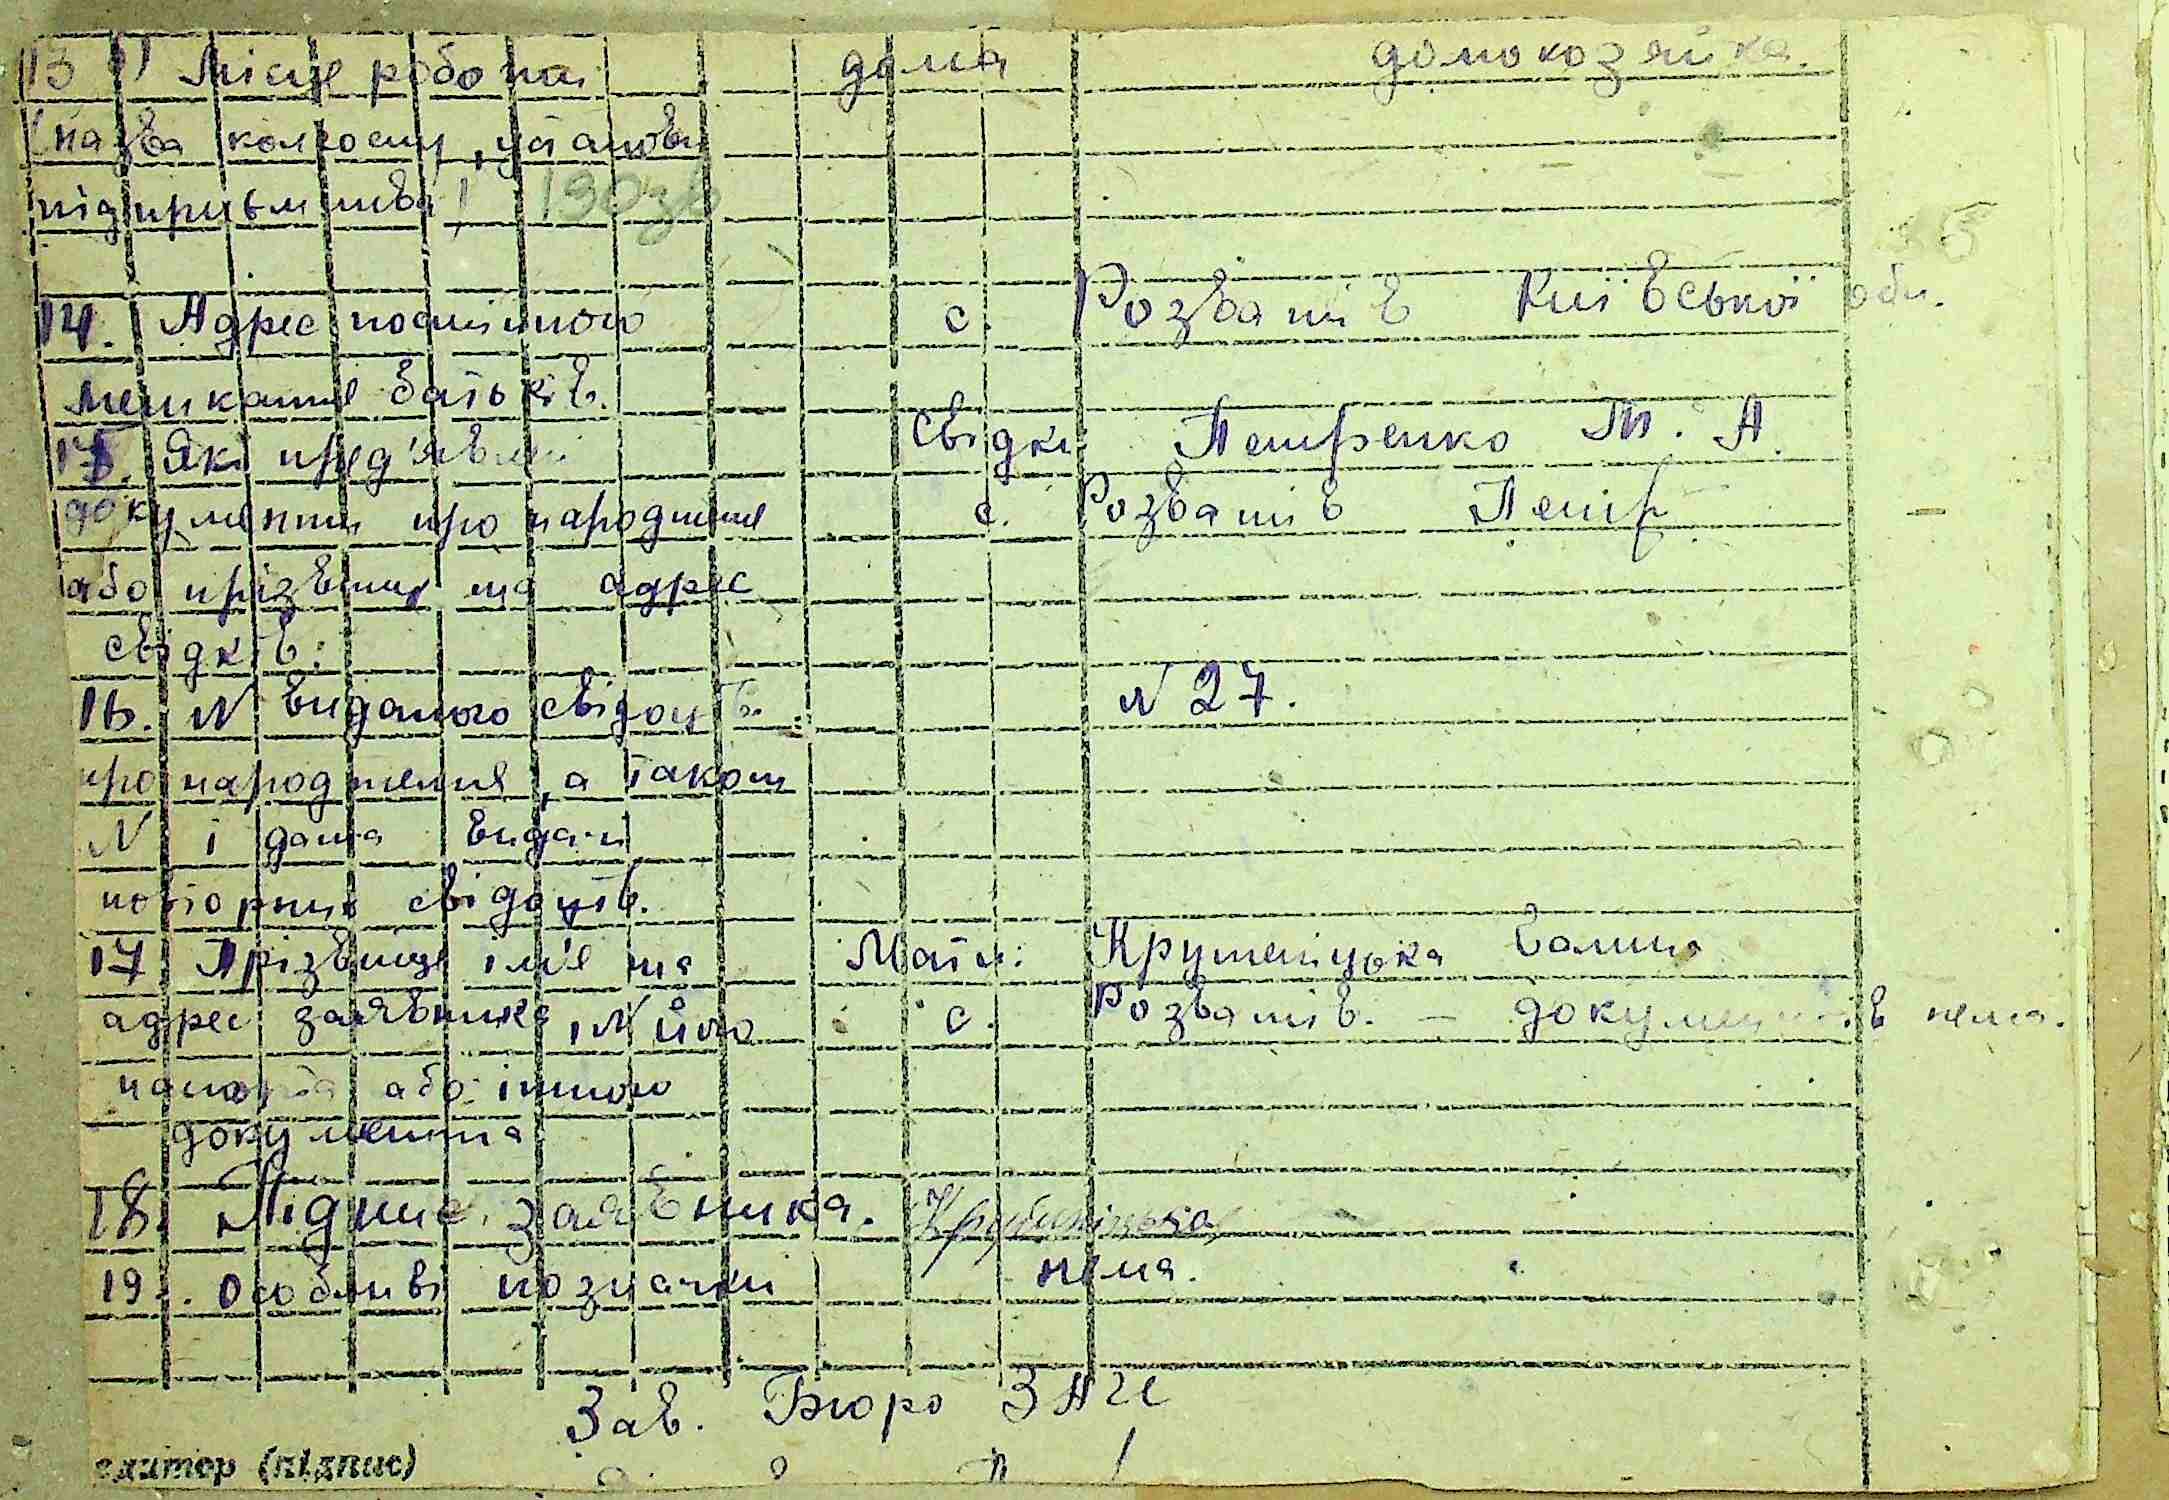 13 Місце роботи дома домохозяйка.
(назва колгоспу, установи
підприємства)
14. Адрес постійного с. Розватів Київської обл.
мешкання батьків.
15. Які пред'явлені свідки Петренко Т. А.
документи про народження с. Розватів Петр
або прізвище та адрес
свідків:
16. N виданого свідоцтв. N 27.
про народження, а також
N і дата видачі
повторних свідоцтв.
17 Прізвище ім'я та Мати: Галина
адрес заявника, N його с. Розватів. – документів нема.
паспорта або іншого
документа
18. Підпис заявника.
19. Особливі позначки нема.
Зав. Бюро ЗАГС
(підпис)